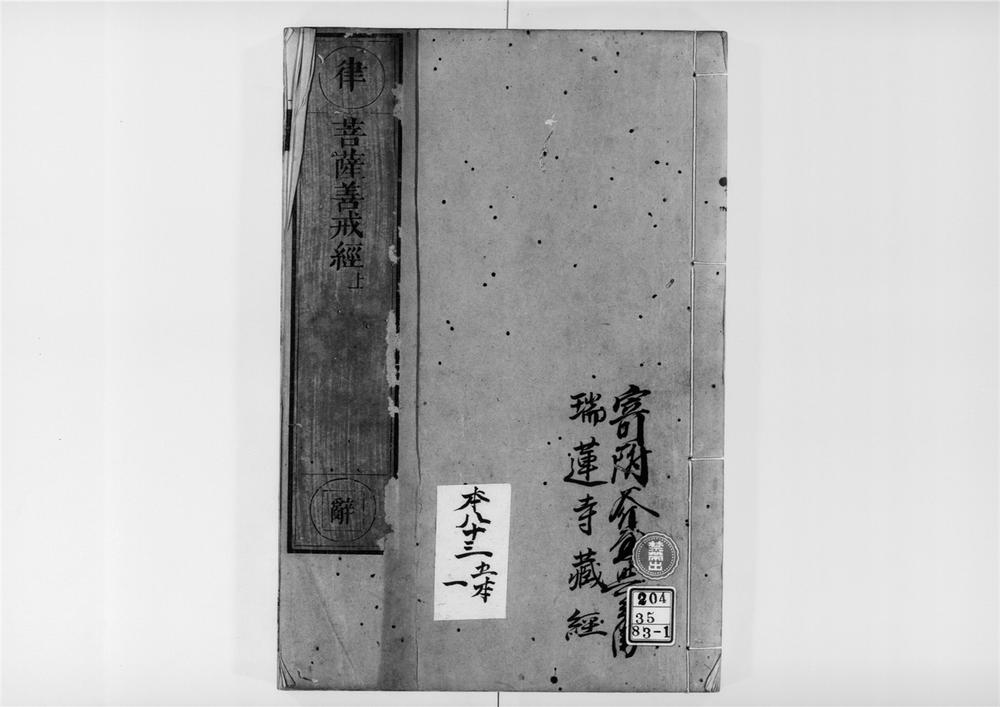 律
菩薩善戒經上
辭
寄附
瑞蓮寺藏經
本八十三
五本
一
禁帶出
204
35
83-1